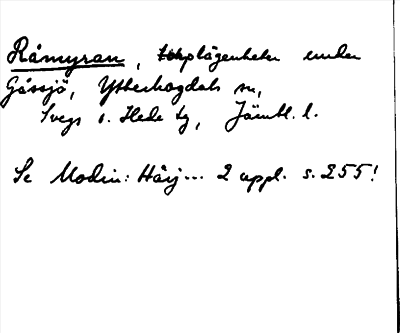 Råmyran, lägenheter under
Gåssjö, Ytterhogdals sn,
Svegs o. Hede tg, Jämtl. l.
Se Modin: Härj... 2 uppl. s. 255!